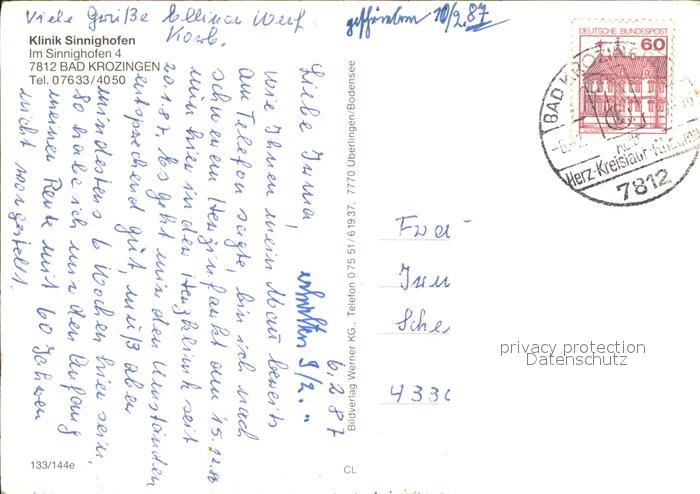 Viele Grüße
geschrieben 10/2.87
Klinik Sinnighofen
Im Sinnighofen 4
7812 BAD KROZINGEN
Tel. 07633/4050
6.2.87
erhalten 9/2. "
Liebe Irma!
Wie Ihnen mein Mann bereits
am Telefon sagte, bin ich nach
schwerem Herzinfarkt am 15.12.86
nun hier in der Herzklinik seit
20.1.87. Es geht mir den Umständen
entsprechend gut, muß aber
mindestens 6 Wochen hier sein.
So habe ich mir den Anfang
meiner Rente mit 60 Jahren
nicht vorgestellt.
Bildverlag Werner KG., Telefon 0 75 51/6 19 37, 7770 Überlingen/Bodensee
133/144e
CL
DEUTSCHE BUNDESPOST
60
BAD KROZINGEN
Herz-Kreislauf-
7812
Frau
Irm
Sche
433
privacy protection
Datenschutz